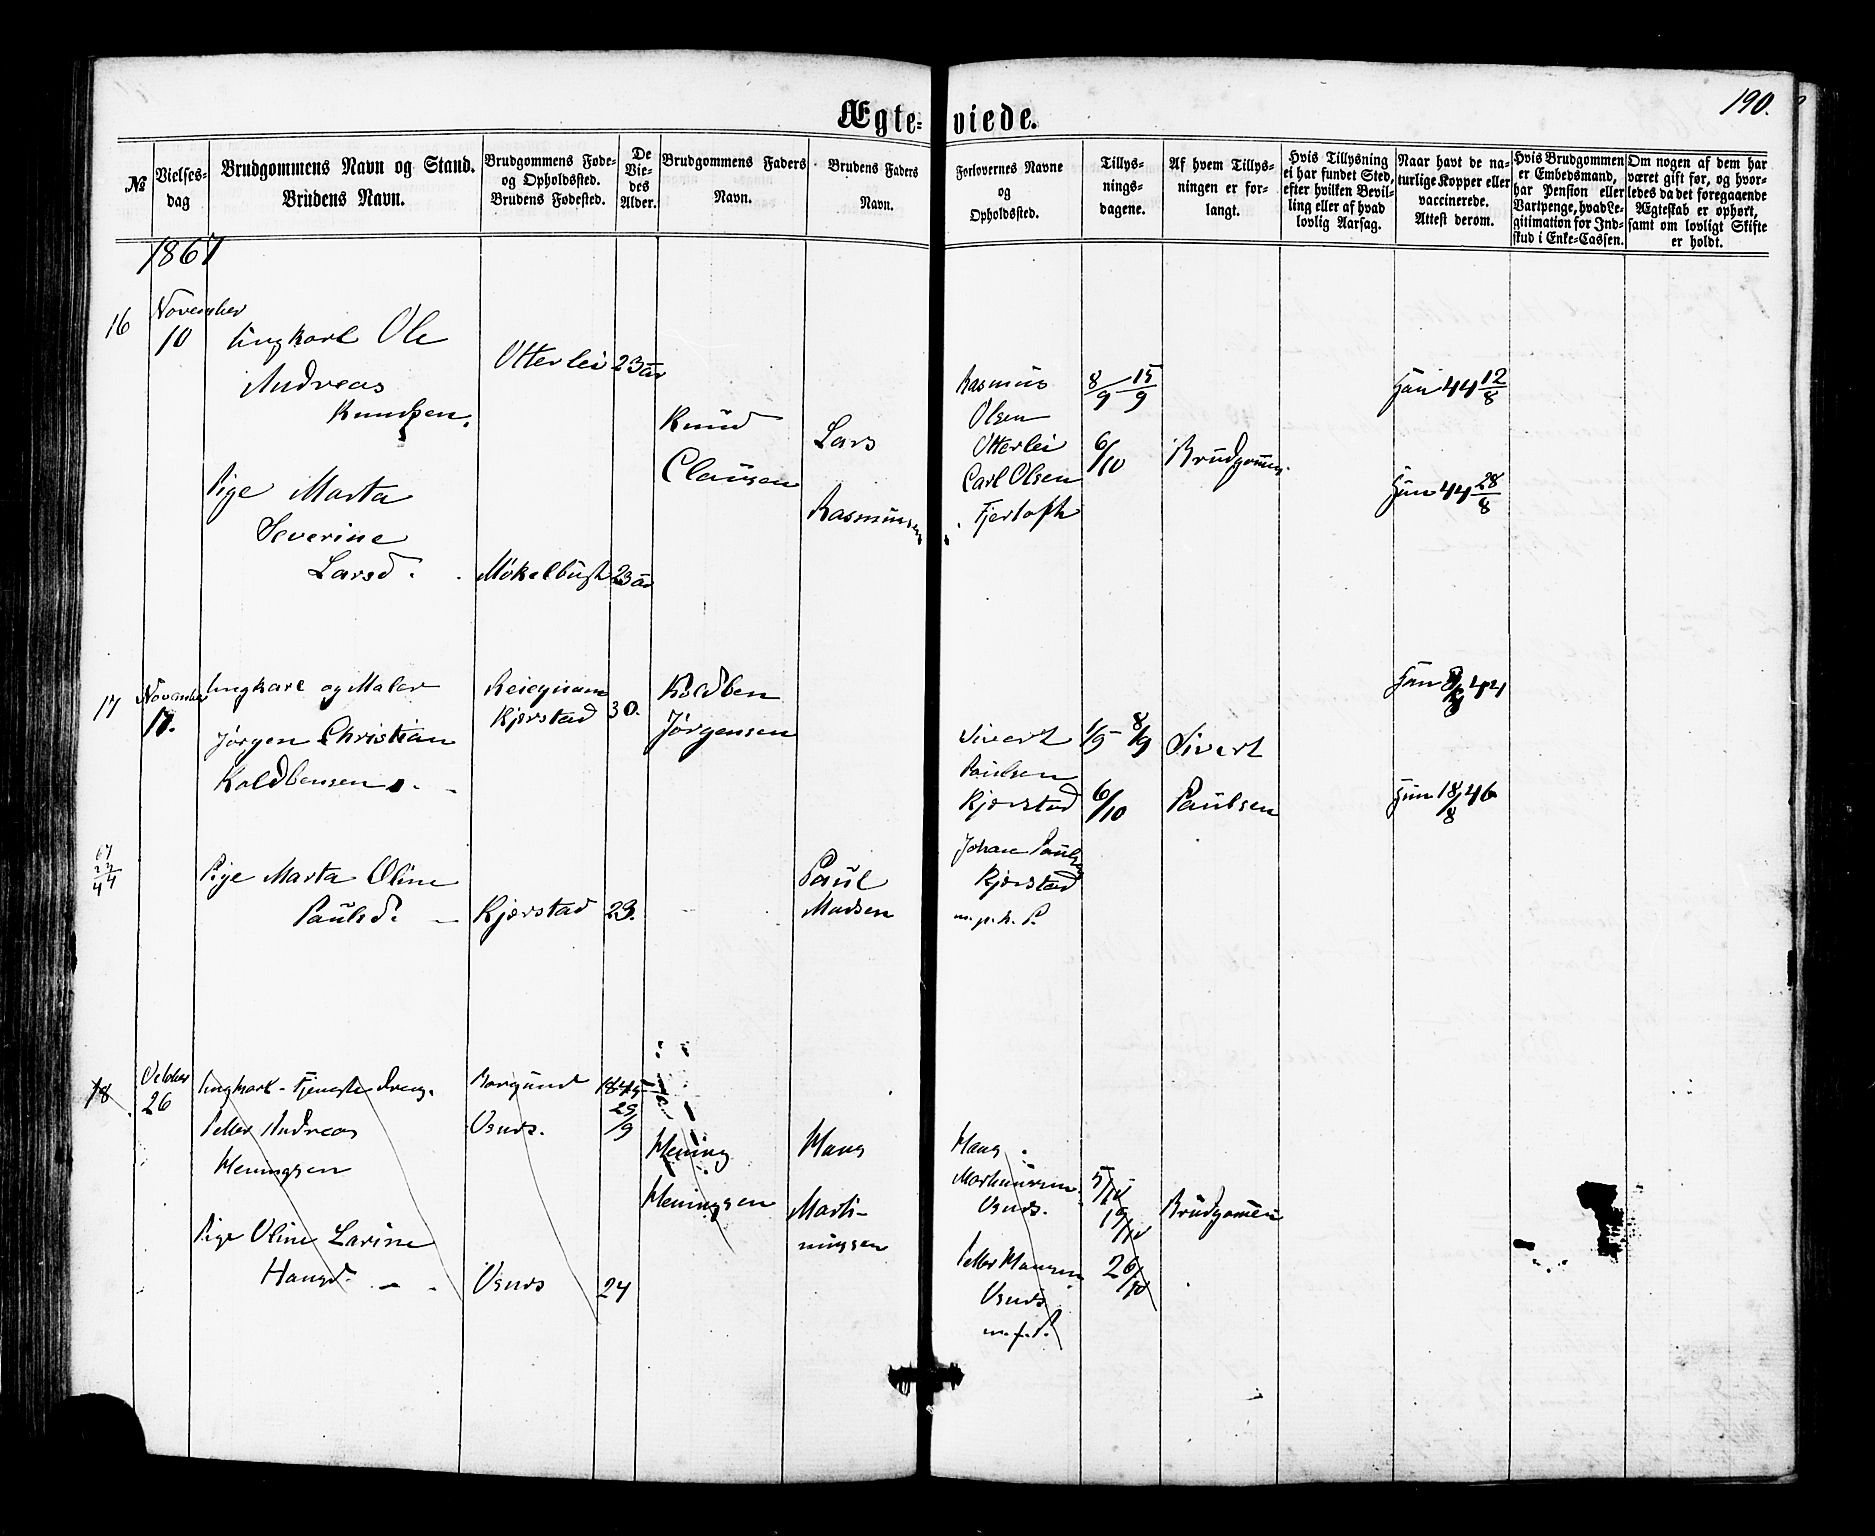 190.
Ægte- viede.
№
Vielses-
dag
Brudgommens Navn og Stand.
Brudens Navn.
Brudgommens Føde-
og Opholdssted.
Brudens Fødested.
De
Vie-
des
Alder.
Brudgommens Faders
Navn.
Brudens Faders
Navn.
Forlovernes Navne
og
Opholdssted.
Tillys-
nings-
dagene.
Af hvem Tillys-
ningen er for-
langt.
Hvis Tillysning
ei har fundet Sted,
efter hvilken Bevil-
ling eller af hvad
lovlig Aarsag.
Naar havt de na-
turlige Kopper eller
vaccinerede.
Attest derom.
Hvis Brudgommen
er Embedsmand,
har Pension eller
Vartpenge, hvad Le-
gitimation for Ind-
skud i Enke-Cassen.
Om nogen af dem har
været gift før, og hvor-
ledes da det foregaaende
Ægteskab er ophørt,
samt om lovligt Skifte
er holdt.
1867
16
November
10
Ungkarl Ole
Andreas
Knudsen.
Otterlei
23 aar
Knud
Clausen
Lars
Rasmusen
Rasmus
Olsen
Otterlei
Carl Olsen
Fjertoft
8/9 - 15/9
6/10
Brudgomen
Han 44 12/8
Hun 44 28/8
Pige Marta
Severine
Larsd.
Møkelbust
23 aar
17
November
17.
Ungkarl og Maler
Jørgen Christian
Koldbensen
Kjerstad
30.
Koldben
Jørgensen
Sivert
Paulsen
Kjerstad
Johan Paulsen
Kjerstad
m. p. h. P.
1/9 - 8/9
6/10
Sivert
Paulsen
Han 44
Hun 18/8 46
Pige Marta Oline
Paulsd.
Kjerstad
23.
Paul
Madsen
18
October
26
Ungkarl - Tjeneste dreng.
Petter Andreas
Heningsen
Borgund
Vsnds.
1845
29/9
Hening
Heningsen
Hans
Marti-
nussen
Hans
Martinussen
Vsnds.
Petter Hansen
Vsnds
m. f. P.
5/10
19/10
26/10
Brudgomen
Pige Oline Larine
Hansd.
Vsnds
24